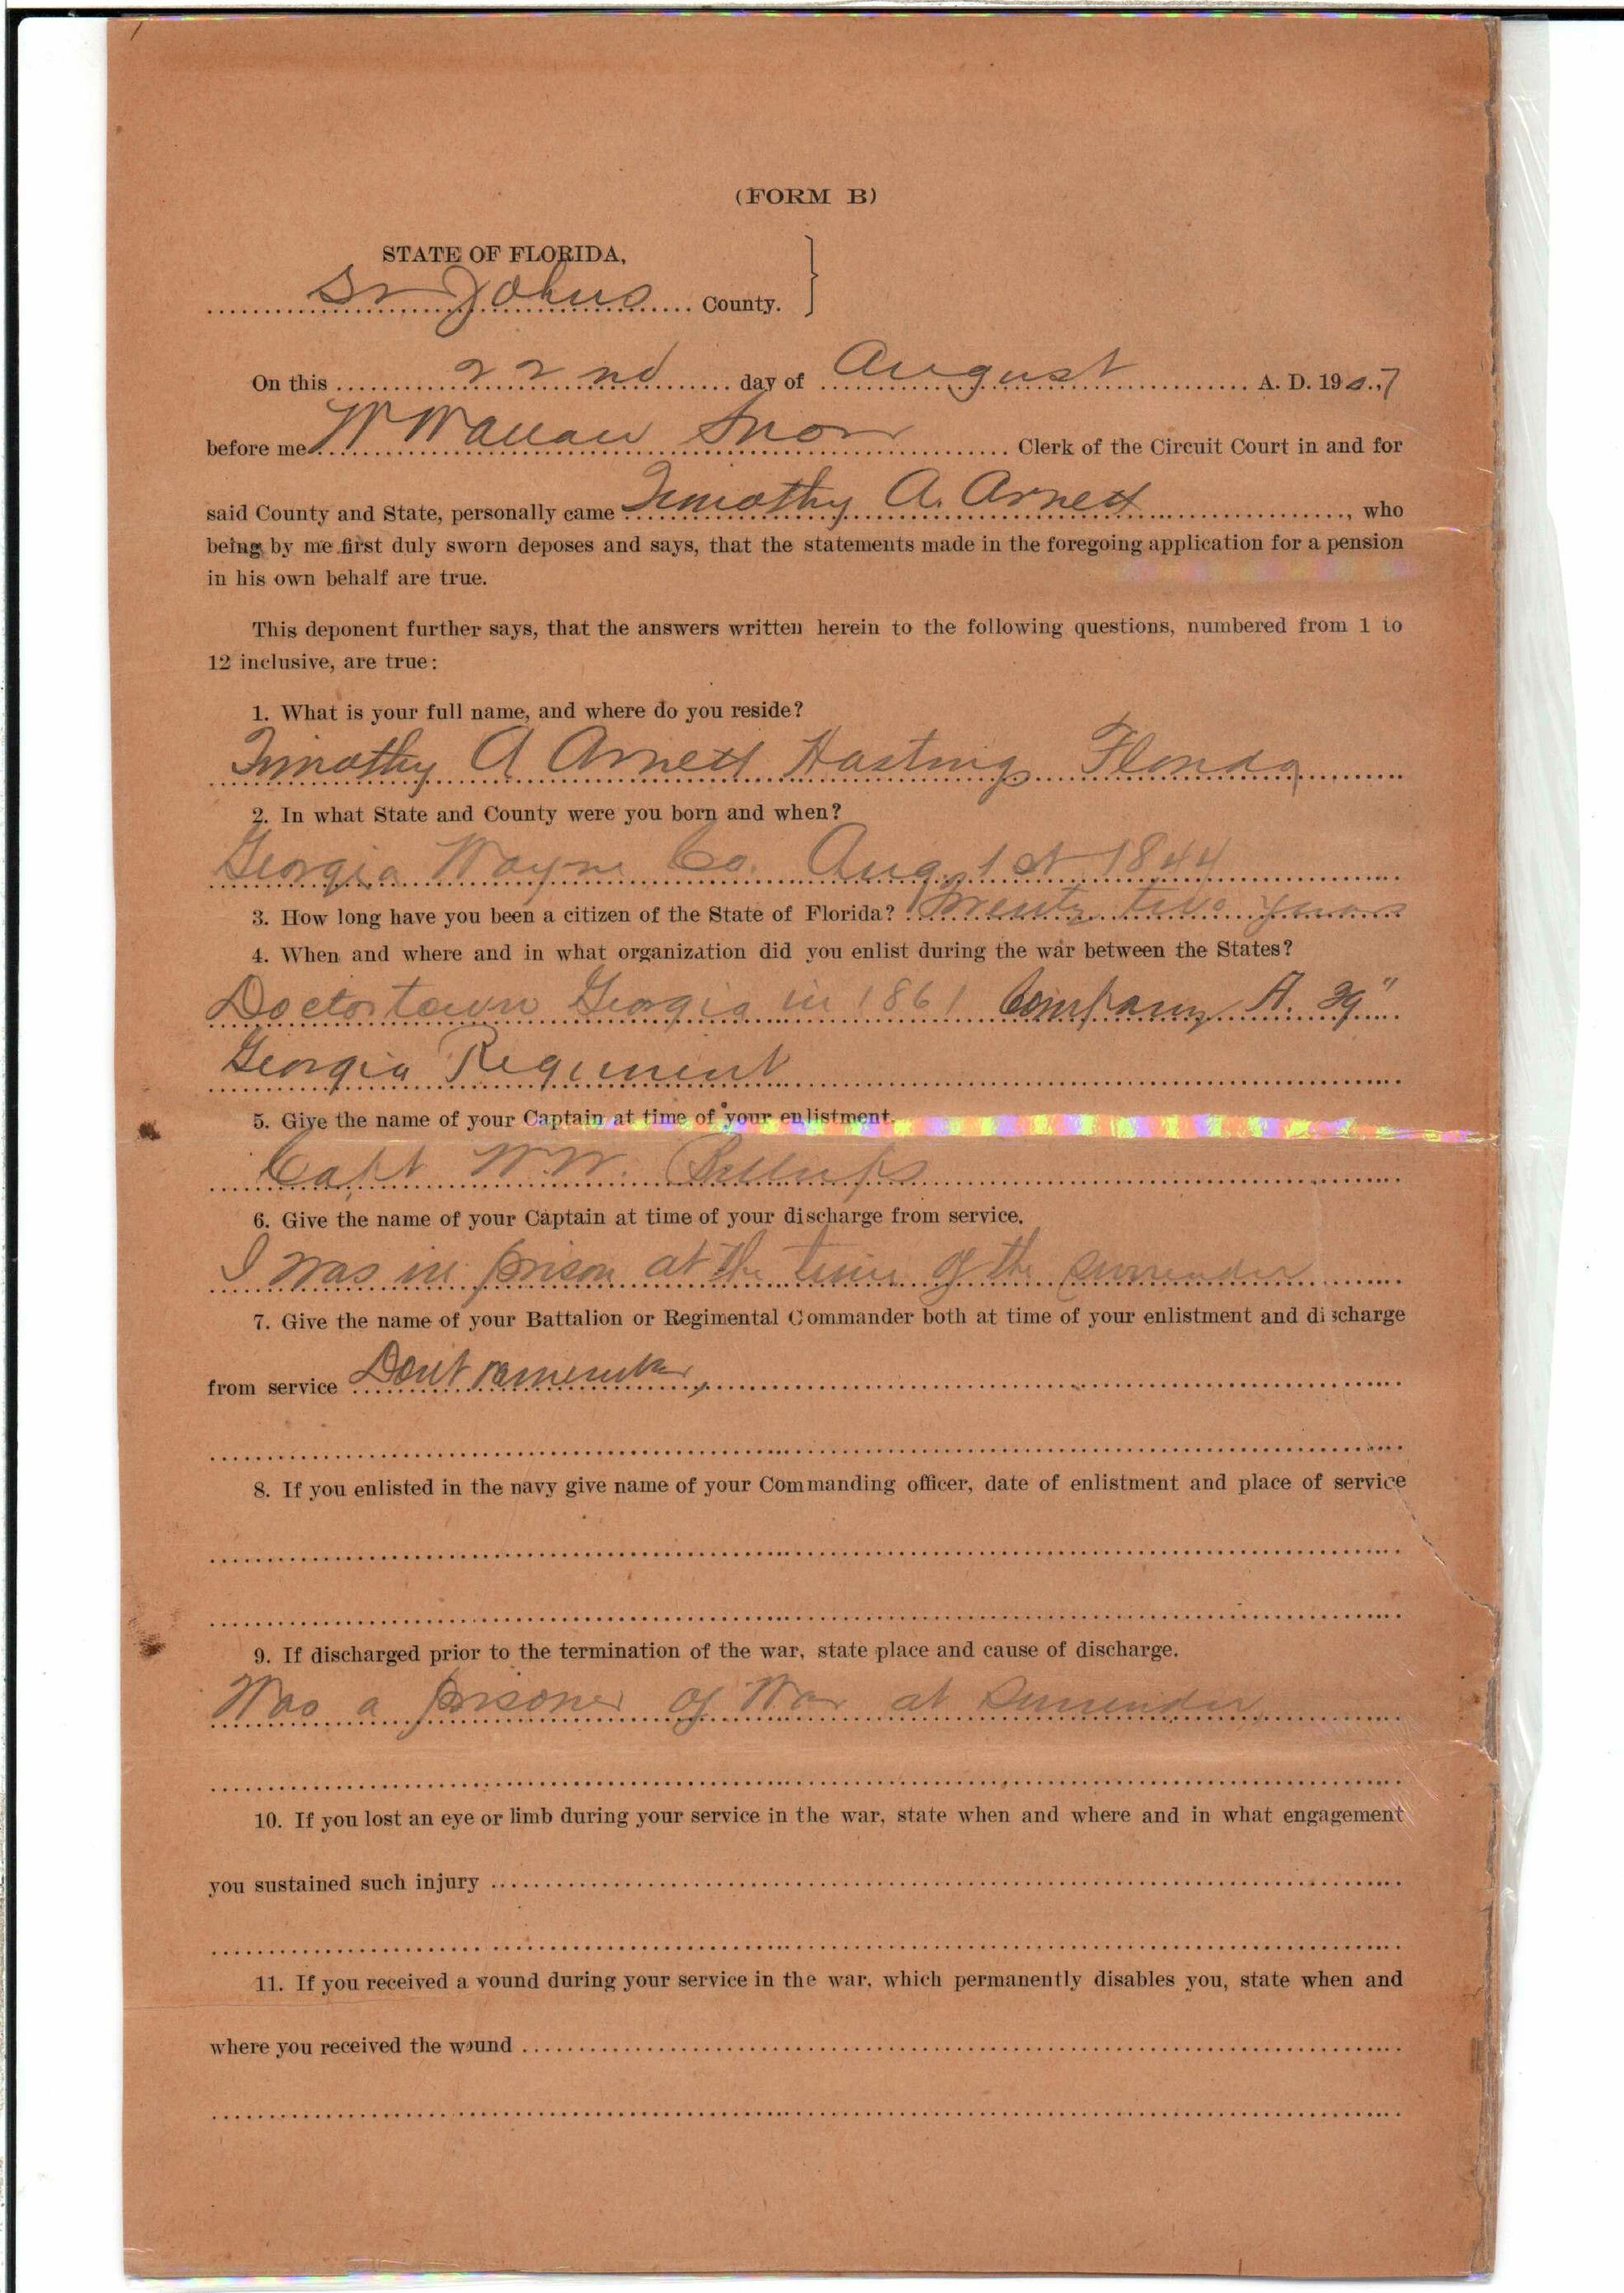 (FORM B)
STATE OF FLORIDA,
St Johns County.
On this 22nd day of August A. D. 1907
before me W Wallace Snow Clerk of the Circuit Court in and for
said County and State, personally came Timothy A. Arnett, who
being by me first duly sworn deposes and says, that the statements made in the foregoing application for a pension
in his own behalf are true.
This deponent further says, that the answers written herein to the following questions, numbered from 1 to
12 inclusive, are true:
1. What is your full name, and where do you reside?
Timothy A Arnett Hastings Florida
2. In what State and County were you born and when?
Georgia Wayne Co. Aug 1st 1844
3. How long have you been a citizen of the State of Florida? Twenty two years
4. When and where and in what organization did you enlist during the war between the States?
Doctortown Georgia in 1861 Company A. 39"
Georgia Regiment
5. Give the name of your Captain at time of your enlistment.
Capt W. W.
6. Give the name of your Captain at time of your discharge from service.
I was in prison at the time of the surrender
7. Give the name of your Battalion or Regimental Commander both at time of your enlistment and discharge
from service Dont remember
8. If you enlisted in the navy give name of your Commanding officer, date of enlistment and place of service
9. If discharged prior to the termination of the war, state place and cause of discharge.
Was a prisoner of War at Surrender
10. If you lost an eye or limb during your service in the war, state when and where and in what engagement
you sustained such injury
11. If you received a wound during your service in the war, which permanently disables you, state when and
where you received the wound